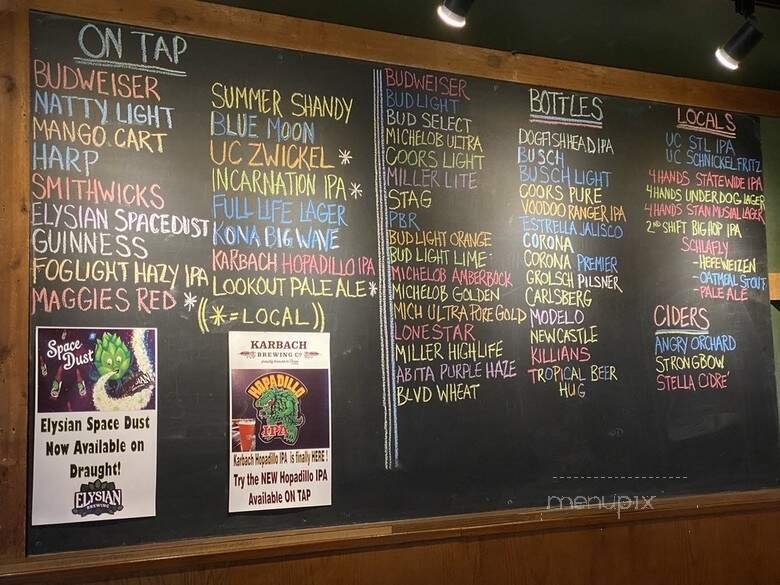 ON TAP
BUDWEISER
NATTY LIGHT
MANGO CART
HARP
SMITHWICKS
ELYSIAN SPACEDUST
GUINNESS
FOGLIGHT HAZY IPA
MAGGIES RED *
SUMMER SHANDY
BLUE MOON
UC ZWICKEL *
INCARNATION IPA *
FULL LIFE LAGER
KONA BIG WAVE
KARBACH HOPADILLO IPA
LOOKOUT PALE ALE *
((* = LOCAL))
Space
Dust
Elysian Space Dust
Now Available on
Draught!
ELYSIAN
BREWING
KARBACH
BREWING CO
HOPADILLO
IPA
Karbach Hopadillo IPA is finally HERE!
Try the NEW Hopadillo IPA
Available ON TAP
BUDWEISER
BUD LIGHT
BUD SELECT
MICHELOB ULTRA
COORS LIGHT
MILLER LITE
STAG
PBR
BUD LIGHT ORANGE
BUD LIGHT LIME
MICHELOB AMBERBOCK
MICHELOB GOLDEN
MICH ULTRA PURE GOLD
LONESTAR
MILLER HIGH LIFE
ABITA PURPLE HAZE
BLVD WHEAT
BOTTLES
DOGFISHHEAD IPA
BUSCH
BUSCH LIGHT
COORS PURE
VOODOO RANGER IPA
ESTRELLA JALISCO
CORONA
CORONA PREMIER
GROLSCH PILSNER
CARLSBERG
MODELO
NEWCASTLE
KILLIANS
TROPICAL BEER
HUG
LOCALS
UC STL IPA
UC SCHNICKELFRITZ
4 HANDS STATEWIDE IPA
4 HANDS UNDERDOG LAGER
4 HANDS STAN MUSIAL LAGER
2ND SHIFT BIG HOP IPA
SCHLAFLY
-HEFEWEIZEN
-OATMEAL STOUT
-PALE ALE
CIDERS
ANGRY ORCHARD
STRONGBOW
STELLA CIDRE'
menupix